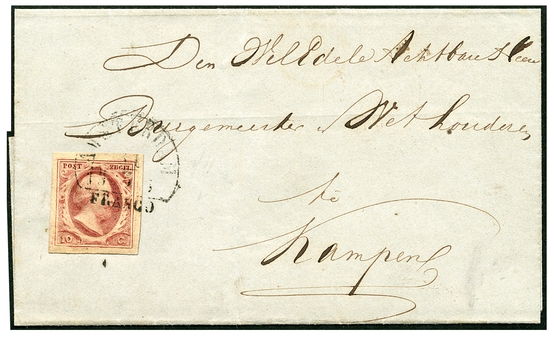 Den WelEdele Achtbare Heer
Burgemeester & Wethouderen
te
Kampen
POST ZEGEL
FRANCO
10 C